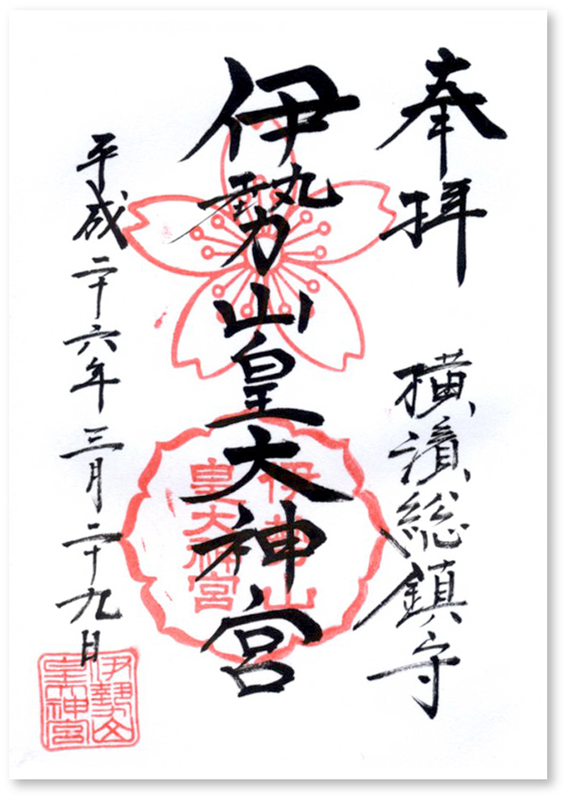 奉拝
横濱総鎮守
伊勢山皇大神宮
平成二十六年三月二十九日
伊勢山
皇大神宮
伊勢山
皇神宮